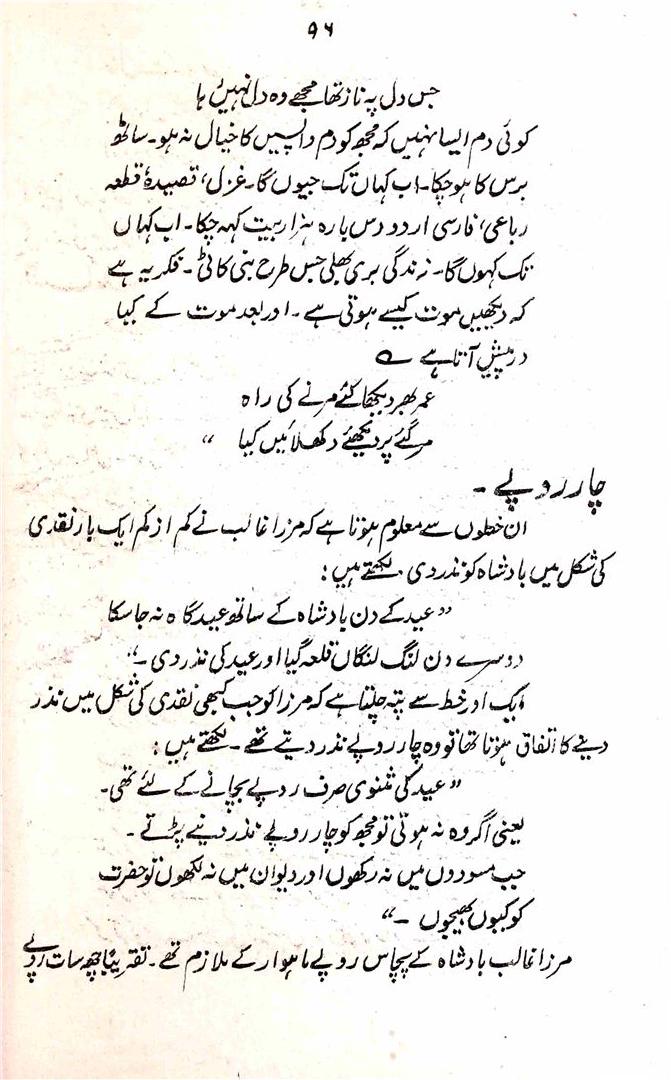 ۹۶
جس دل پہ ناز تھا مجھے وہ دل نہیں رہا
کوئی دم ایسا نہیں کہ مجھ کو دم واپسیں کا خیال نہ ہو۔ ساٹھ
برس کا ہو چکا۔ اب کہاں تک جیوں گا۔ غزل، قصیدہ، قطعہ
رباعی، فارسی اردو دس بارہ ہزار بیت کہہ چکا۔ اب کہاں
تک کہوں گا۔ زندگی بری بھلی جس طرح بنی کاٹی۔ فکر یہ ہے
کہ دیکھیں موت کیسے ہوتی ہے۔ اور بعد موت کے کیا
درپیش آتا ہے ؎
عمر بھر دیکھا کئے مرنے کی راہ
مر گئے پر دیکھئے دکھلائیں کیا “
چار روپے۔
ان خطوں سے معلوم ہوتا ہے کہ مرزا غالب نے کم از کم ایک بار نقدی
کی شکل میں بادشاہ کو نذر دی۔ لکھتے ہیں:
”عید کے دن بادشاہ کے ساتھ عید گاہ نہ جا سکا
دوسرے دن لنگ لنگاں قلعہ گیا اور عید کی نذر دی۔“
ایک اور خط سے پتہ چلتا ہے کہ مرزا کو جب کبھی نقدی کی شکل میں نذر
دینے کا اتفاق ہوتا تھا تو وہ چار روپے نذر دیتے تھے۔ لکھتے ہیں:
”عید کی مثنوی صرف روپے بچانے کے لئے تھی۔
یعنی اگر وہ نہ ہوتی تو مجھ کو چار روپے نذر دینے پڑتے۔
جب مسودوں میں نہ رکھوں اور دیوان میں نہ لکھوں تو حضرت
کو کیوں بھیجوں۔“
مرزا غالب بادشاہ کے پچاس روپے ماہوار کے ملازم تھے۔ تقریباً چھ سات روپے